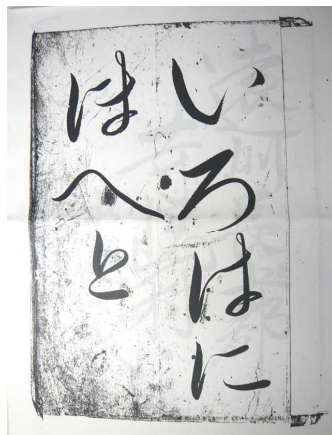 いろはに
ほへと